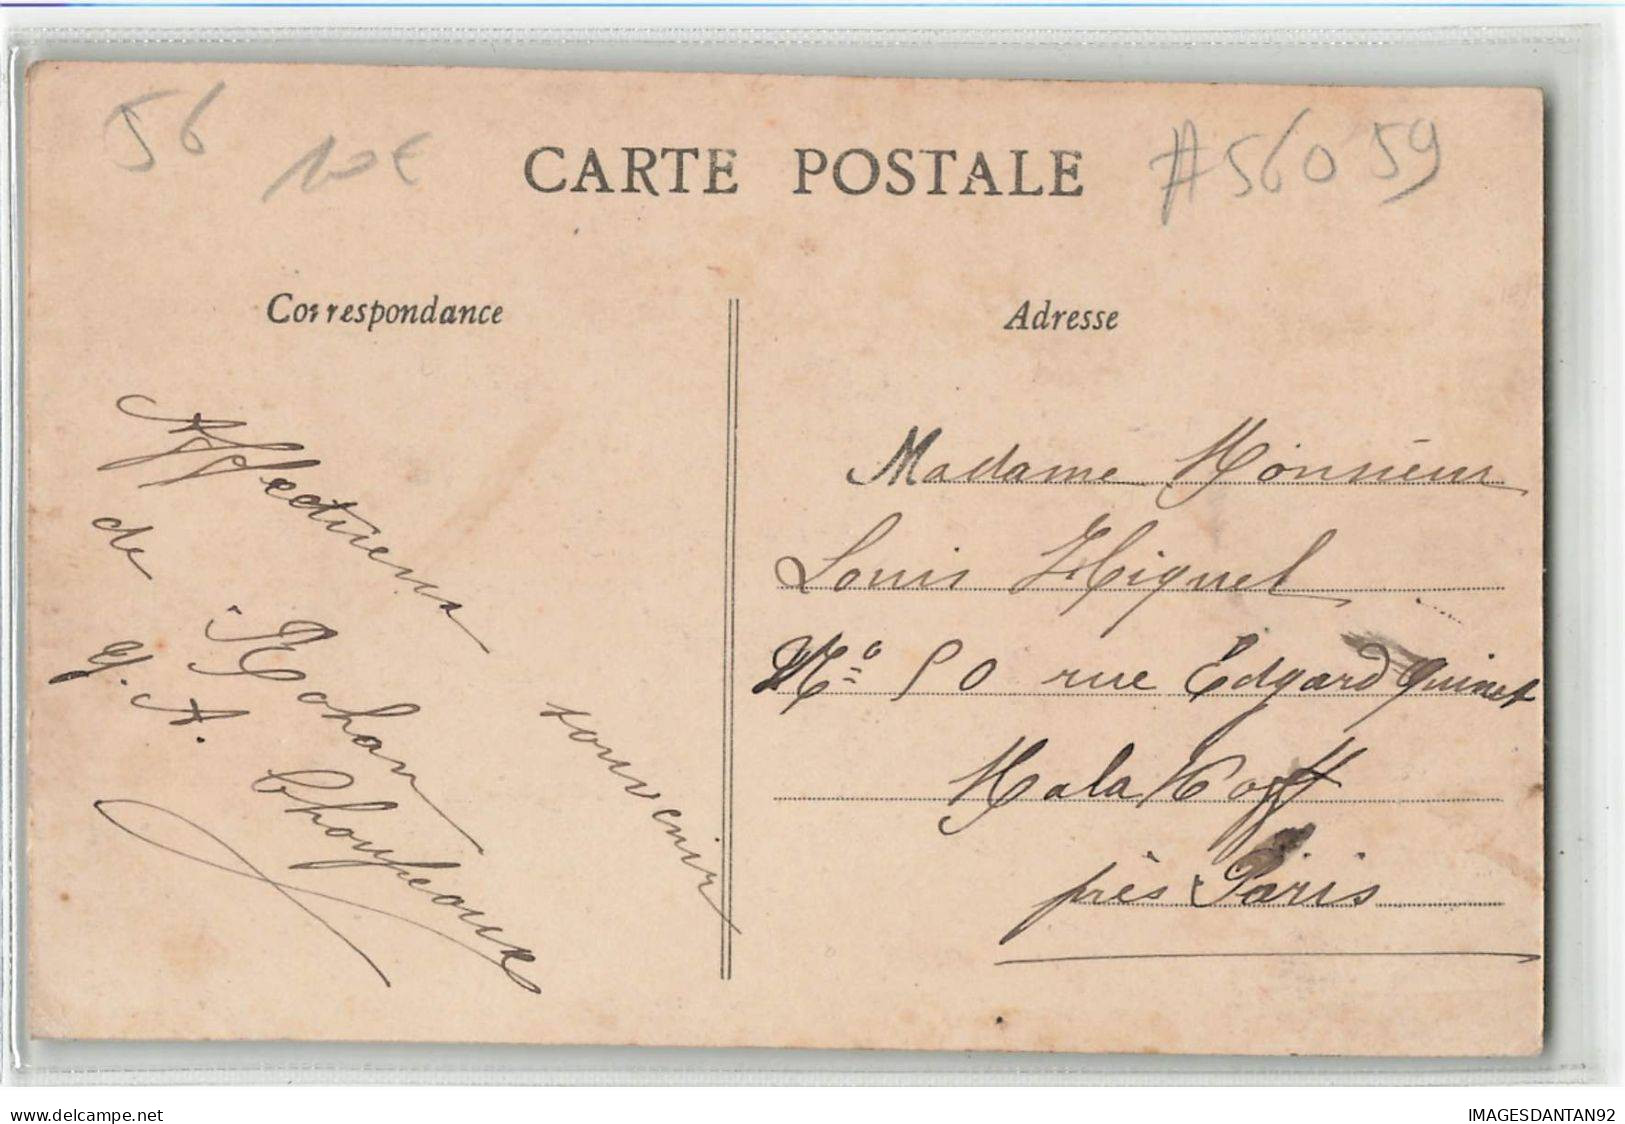 56
10€
CARTE POSTALE
#56059
Correspondance
Affectieux
souvenir
de Rohan
Y. A.
Adresse
Madame Monsieur
Louis Miquel
N° 50 rue Edgard Quinet
MalaKoff
près Paris
www.delcampe.net
IMAGESDANTAN92